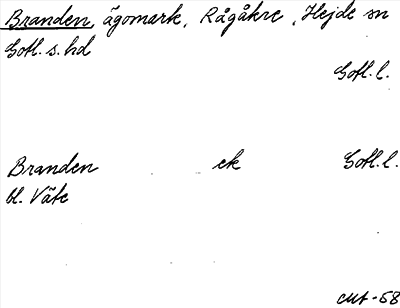 Branden, ägomark, Rågåkre, Hejde sn
Gotl. s. hd
Gotl. l.
Branden ek Gotl. l.
bl. Väte